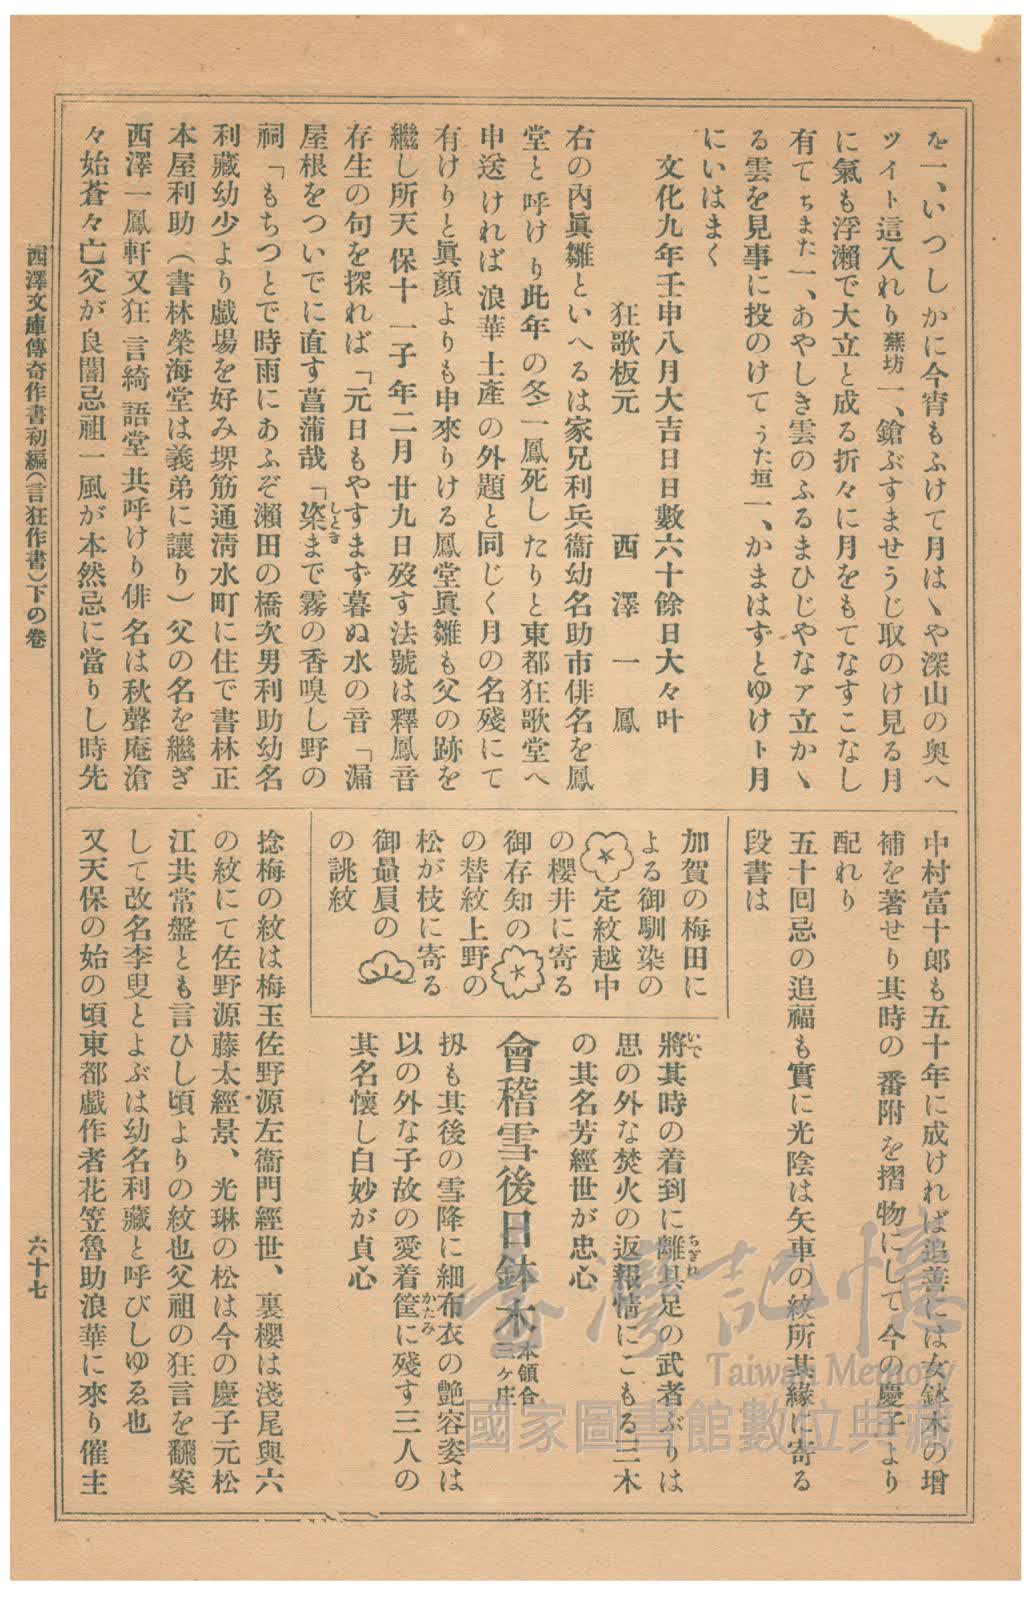 を一、いつしかに今宵もふけて月はヽや深山の奥へ
ツイト這入れり蕪坊一、鎗ぶすませうじ取のけ見る月
に氣も浮瀬で大立と成る折々に月をもてなすこなし
有てちまた一、あやしき雲のふるまひじやなア立かヽ
る雲を見事に投のけてうた垣一、かまはずとゆけト月
にいはまく
文化九年壬申八月大吉日日數六十餘日大々叶
狂歌板元　西澤一鳳
右の內眞雛といへるは家兄利兵衞幼名助市俳名を鳳
堂と呼けり此年の冬一鳳死したりと東都狂歌堂へ
申送ければ浪華土產の外題と同じく月の名殘にて
有けりと眞顏よりも申來りける鳳堂眞雛も父の跡を
繼し所天保十一子年二月廿九日歿す法號は釋鳳音
存生の句を探れば「元日もやすまず暮ぬ水の音「漏
屋根をついでに直す菖蒲哉「楽まで霧の香嗅し野の
祠「もちつとで時雨にあふぞ瀨田の橋次男利助幼名
利藏幼少より戲場を好み堺筋通淸水町に住で書林正
本屋利助（書林榮海堂は義弟に讓り）父の名を繼ぎ
西澤一鳳軒又狂言綺語堂共呼けり俳名は秋聲庵滄
々始蒼々亡父が良闇忌祖一風が本然忌に當りし時先
中村富十郞も五十年に成ければ追善には女鉢木の增
補を著せり其時の番附を摺物にして今の慶子より
配れり
五十回忌の追福も實に光陰は矢車の紋所其緣に寄る
段書は
加賀の梅田に
よる御馴染の
定紋越中
の櫻井に寄る
御存知の
の替紋上野の
松が枝に寄る
御贔屓の
の誂紋
將其時の着到に離具足の武者ぶりは
いで
ちぎれ
思の外な焚火の返報情にこもる三木
の其名芳經世が忠心
會稽雪後日鉢木本領合三ヶ庄
扨も其後の雪降に細布衣の艷容姿は
以の外な子故の愛着筐に殘す三人の
かたみ
其名懷し白妙が貞心
捻梅の紋は梅玉佐野源左衞門經世、裏櫻は淺尾與六
の紋にて佐野源藤太經景、光琳の松は今の慶子元松
江共常盤とも言ひし頃よりの紋也父祖の狂言を飜案
して改名李叟とよぶは幼名利藏と呼びしゆゑ也
又天保の始の頃東都戲作者花笠魯助浪華に來り催主
西澤文庫傳奇作書初編（言狂作書）下の卷
六十七
臺灣記憶
Taiwan Memory
國家圖書館數位典藏